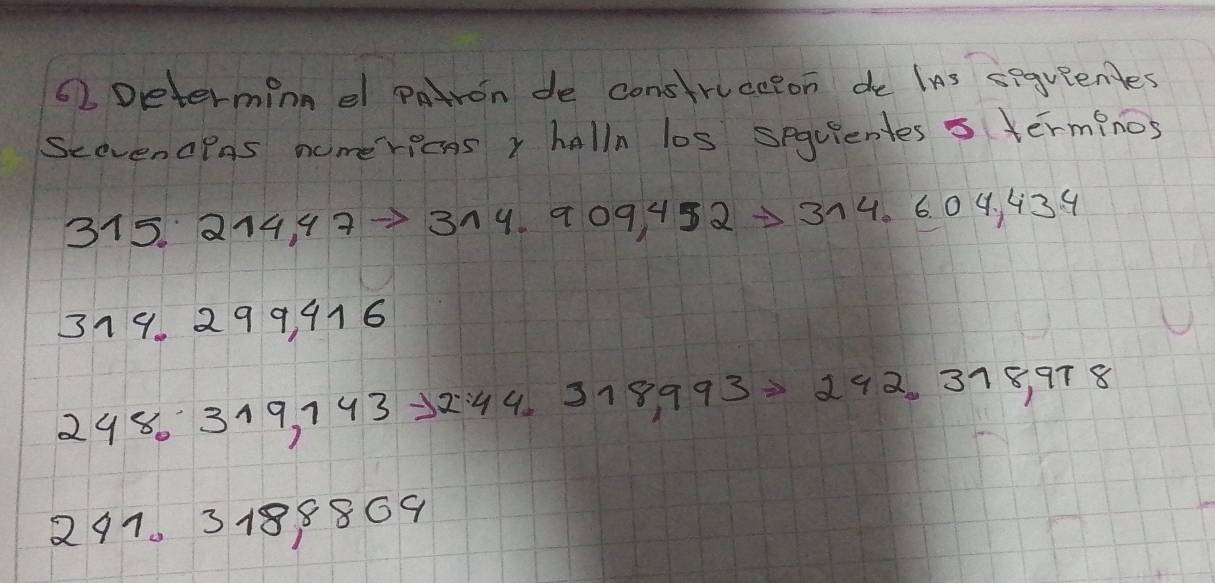 2 Determina el patrón de construcceion de las siguientes
Secuencias numéricas y halla los siguientes 5 términos
315. 214,47 → 314. 909,452 → 314. 604,434
314. 299,416
248. 319,143 → 244. 318,993 → 242. 318,918
241. 318,8869